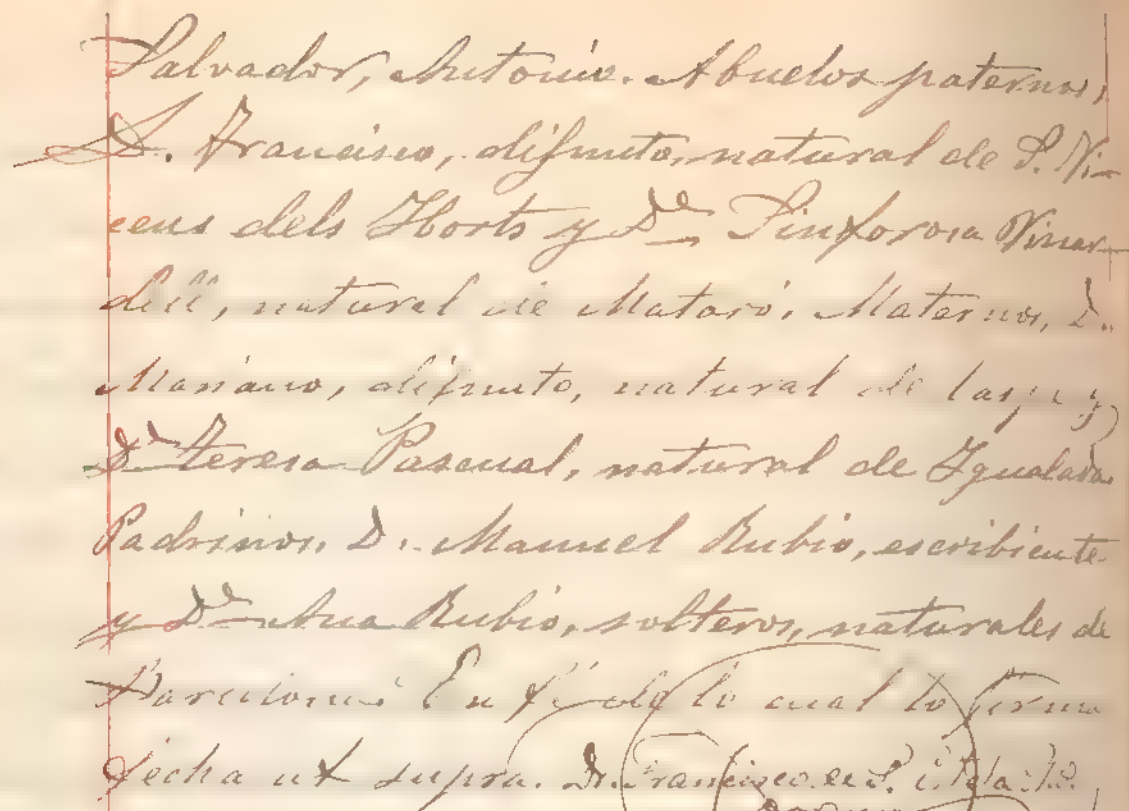 Salvador, Antonio. Abuelos paternos,
D. Francisco, difunto, natural de S. Vi-
cens dels Horts y Dª Sinforosa Vinar-
dell, natural de Mataró. Maternos, D.
Mariano, difunto, natural de y
Dª Teresa Pascual, natural de Igualada
Padrinos, D. Manuel Rubio, escribiente
y Dª Ana Rubio, solteros, naturales de
Barcelona En fé de lo cual lo firmo
fecha ut supra. Dr. Francisco de